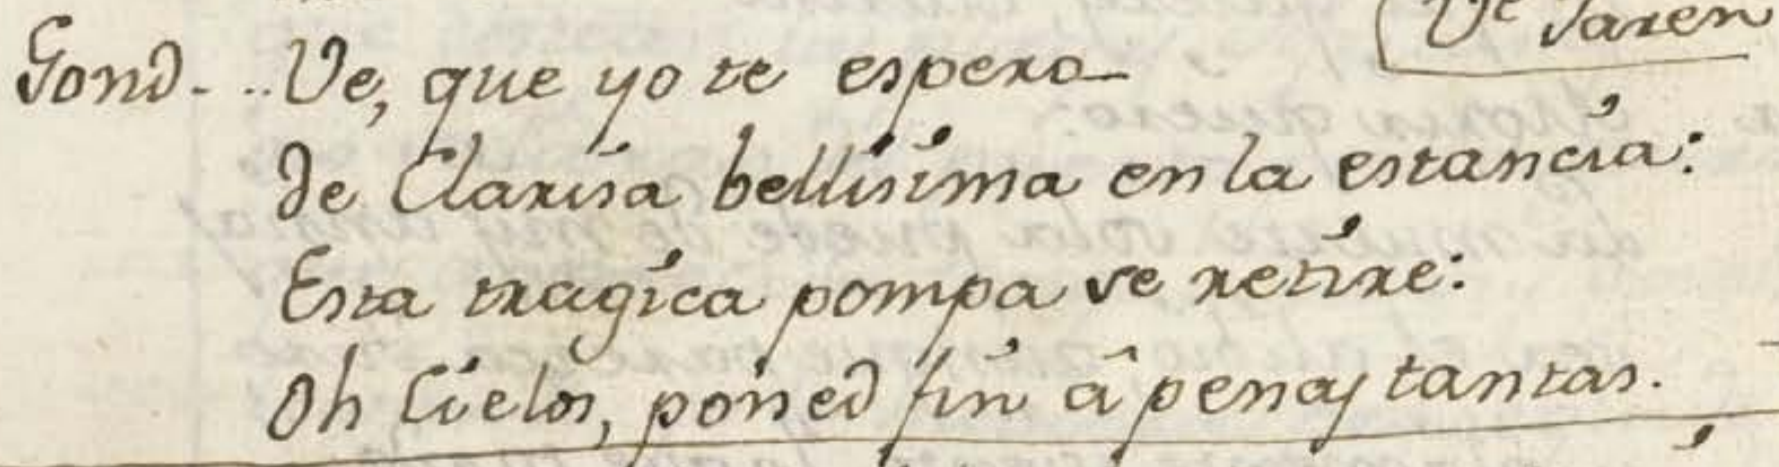 Ve Jaren
Gond- .. Ve, que yo te espero
de Clarisa bellisima en la estancia:
Esta tragica pompa se retire:
Oh Cielos, poned fin â penas tantas.